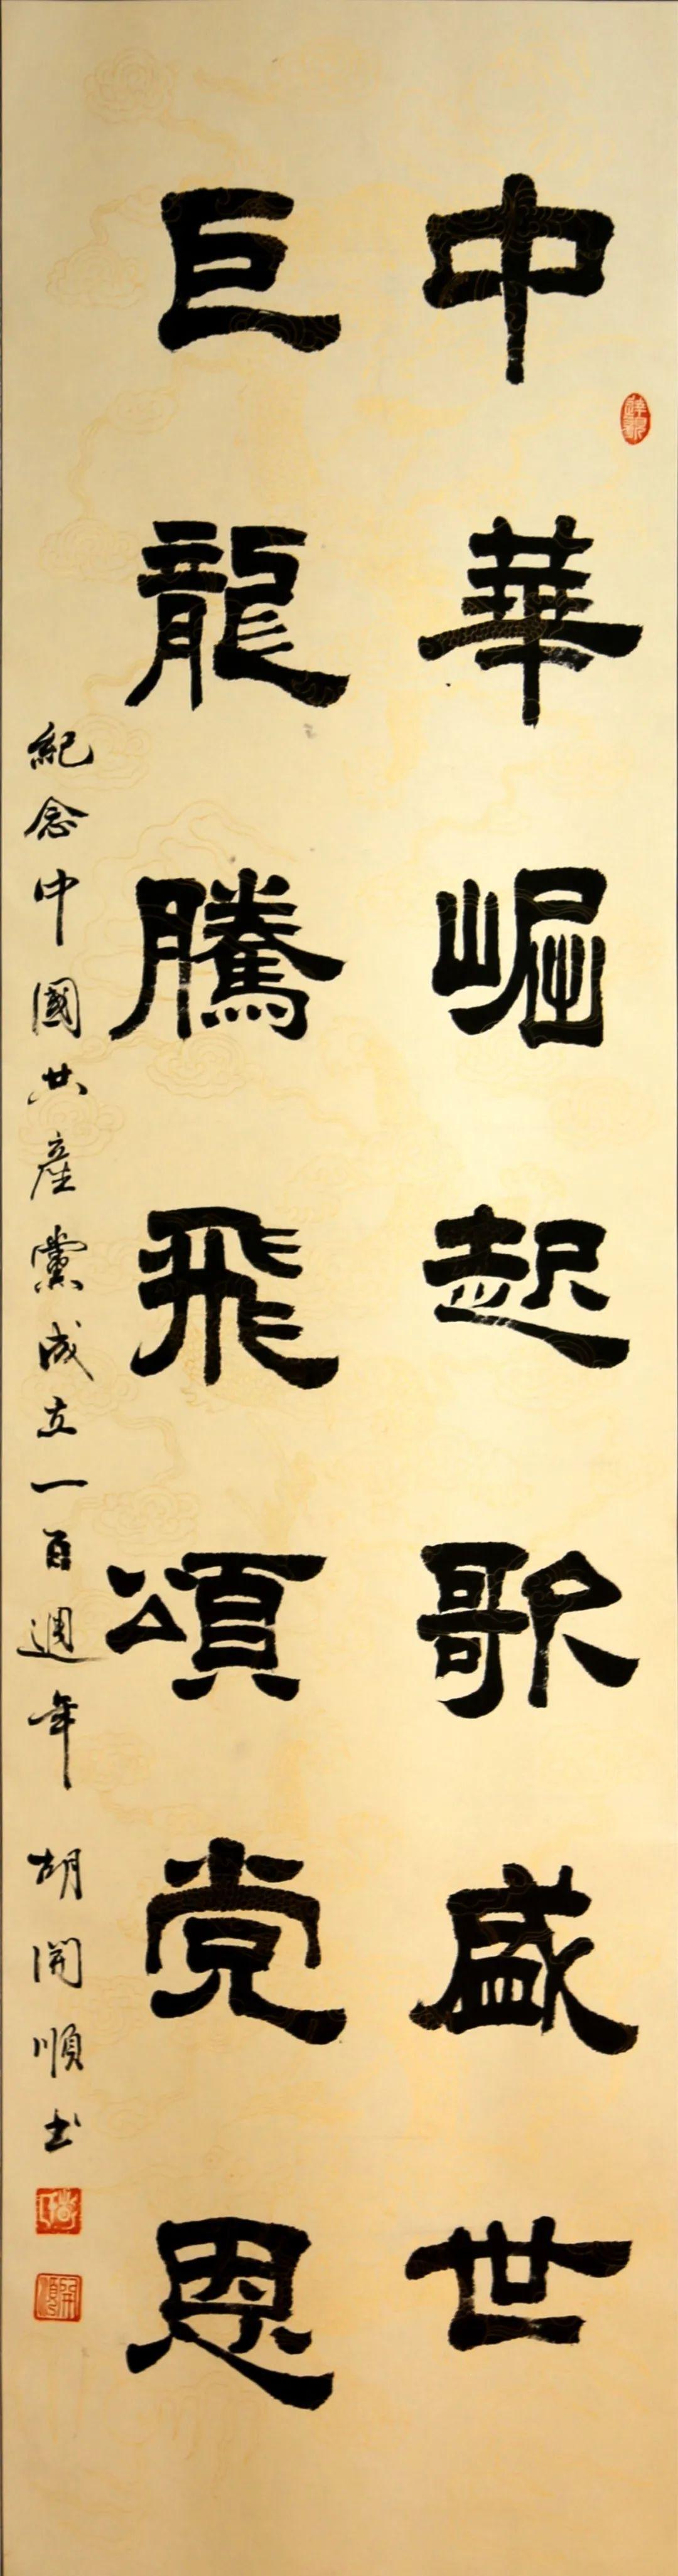 中華崛起歌盛世
巨龍騰飛頌党恩
紀念中國共產黨成立一百週年 胡開順书